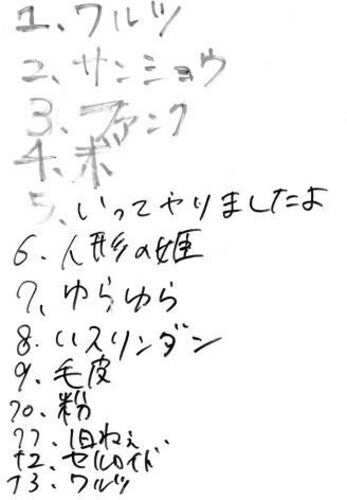 1、ワルツ
2、サンショウ
3、ファンク
4、ボ
5、いってやりましたよ
6、人形の姫
7、ゆらゆら
8、いスリンダン
9、毛皮
10、粉
11、旧ねぇ、、
12、セルロイド
13、ワルツ